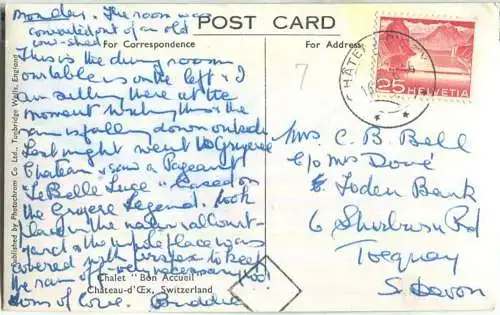 Monday. The room was
converted out of an old
cow-shed
POST CARD
For Correspondence
For Address
This is the dining room
our table is on the left & I
am sitting here at the
moment writing this & the
rain is falling down outside
Last night went to Gruyere
Chateau & saw a Pageant
"La Belle Luce" based on
the Gruyere Legend. Took
place in the natural Court-
yard & the whole place was
covered with perspex to keep
the rain off - very necessary too!
Tons of love. Buddie
Chalet "Bon Accueil"
Château-d'Œx, Switzerland
Published by Photochrom Co. Ltd., Tunbridge Wells, England
7
CHÂTEAU
25
HELVETIA
Mrs C. B. Bell
C/o Mrs Dové
Loden Bank
6 Sherburn Rd
Torquay
S. Devon